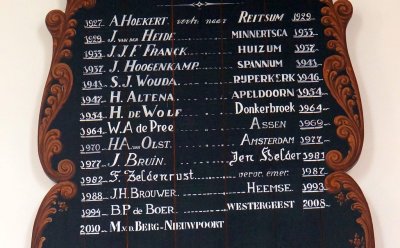 1927 A. Hoekert. verh naar Reitsum
1929 J. van der Heide Minnertsca 1933
1933 J.J.F. Franck. Huizum 1937
1937 J. Hoogenkamp. Spannum
1943 S.J. Wouda Rijperkerk 1946
1947 H. Altena Apeldoorn
1954 H. de Wolf Donkerbroek 1964
1964 W.A. de Pree Assen 1969
1970 H.A. van Olst. Amsterdam 1977
1977 J. Bruin. Den Helder 1981
1982 F. Zeldenrust vervr. emer. 1987
1988 J.H. Brouwer. Heemse. 1993
1994 B.P. de Boer Westergeest 2008
2010 M. v.d. Berg-Nieuwpoort